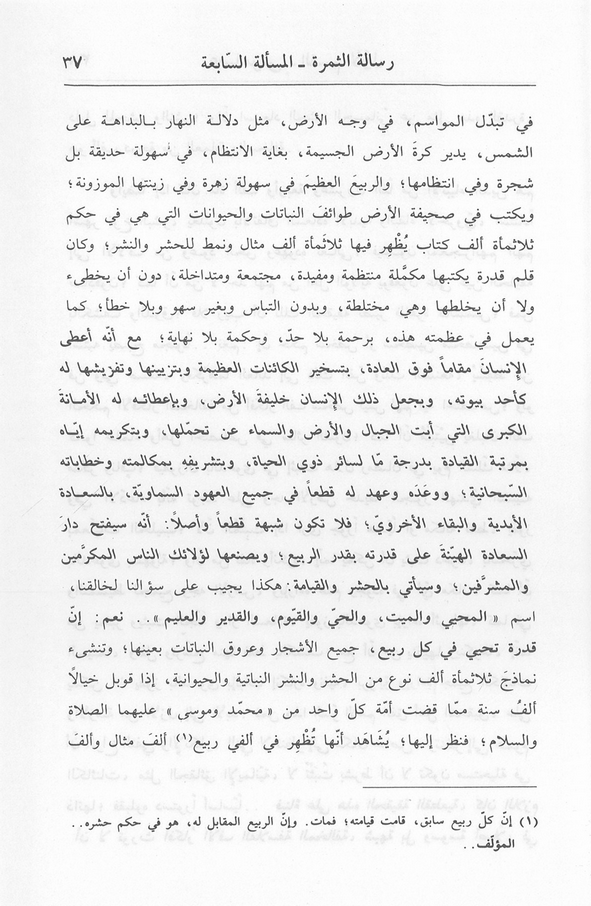 رسالة الثمرة ـ المسألة السّابعة ٣٧
في تبدّل المواسم، في وجـه الأرض، مثل دلالـة النهار بـالبداهـة على
الشمس، يدير كرةَ الأرض الجسيمة، بغاية الانتظام، في سهولة حديقة بل
شجرة وفي انتظامها؛ والربيعَ العظيمَ في سهولة زهرة وفي زينتها الموزونة؛
ويكتب في صحيفة الأرض طوائفَ النباتات والحيوانات التي هي في حكم
ثلاثمأة ألف كتاب يُظْهِر فيها ثلاثَمأة ألف مثال ونمط للحشر والنشر؛ وكان
قلم قدرة يكتبها مكمَّلة منتظمة ومفيدة، مجتمعة ومتداخلة، دون أن يخطىء
ولا أن يخلطها وهي مختلطة، وبدون التباس وبغير سهو وبلا خطأ؛ كما
يعمل في عظمته هذه، برحمة بلا حدّ، وحكمة بلا نهاية؛ مع أنّه أعطى
الإنسانَ مقاماً فوق العادة، بتسخير الكائنات العظيمة وبتزيينها وتفريشها له
كأحد بيوته، وبجعل ذلك الإنسان خليفةَ الأرض، وبإعطائـه له الأمـانةَ
الكبرى التي أبت الجبال والأرض والسماء عن تحمّلها، وبتكريمه إيّـاه
بمرتبة القيادة بدرجة مّا لسائر ذوي الحياة، وبتشريفِهِ بمكالمته وخطاباته
السّبحانية؛ ووعَدَه وعهد له قطعاً في جميع العهود السماويّة، بالسـعادة
الأبدية والبقاء الأخرويّ؛ فلا تكون شبهة قطعاً وأصلاً: أنّه سيفتح دارَ
السعادة الهيّنةَ على قدرته بقدر الربيع؛ ويصنعها لؤلائك الناس المكرَّمين
والمشرَّفين؛ وسيأتي بالحشر والقيامة: هكذا يجيب على سؤالنا لخالقنا،
اسم « المحيي والميت، والحيّ والقيّوم، والقدير والعليم ».. نعم: إنّ
قدرة تحيي في كل ربيع، جميع الأشجار وعروق النباتات بعينها؛ وتنشىء
نماذجَ ثلاثمأة ألف نوع من الحشر والنشر النباتية والحيوانية، إذا قوبل خيالاً
ألفُ سنة ممّا قضت أمّة كلّ واحد من « محمّد وموسى » عليهما الصلاة
والسلام؛ فنظر إليها؛ يُشَاهَد أنّها تُظْهِر في ألفي ربيع(١) ألفَ مثال وألفَ
(١) إنّ كلّ ربيع سابق، قامت قيامته؛ فمات. وإنّ الربيع المقابل له، هو في حكم حشره..
المؤلّف..